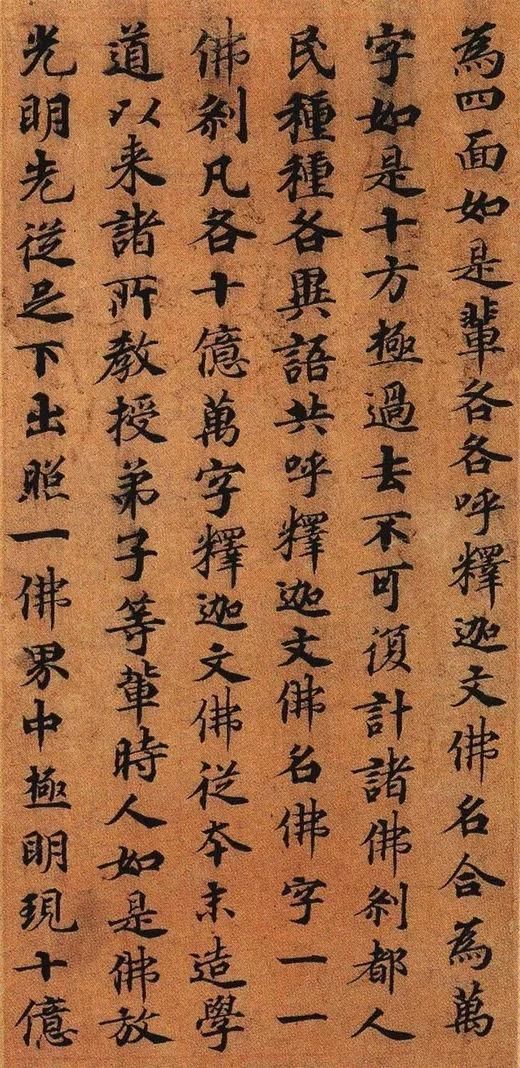 為四面如是輩各各呼釋迦文佛名合為萬
字如是十方極過去不可復計諸佛刹都人
民種種各異語共呼釋迦文佛名佛字一一
佛刹凡各十億萬字釋迦文佛從本末造學
道以来諸所教授弟子等輩時人如是佛放
光明光從足下出照一佛界中極明現十億